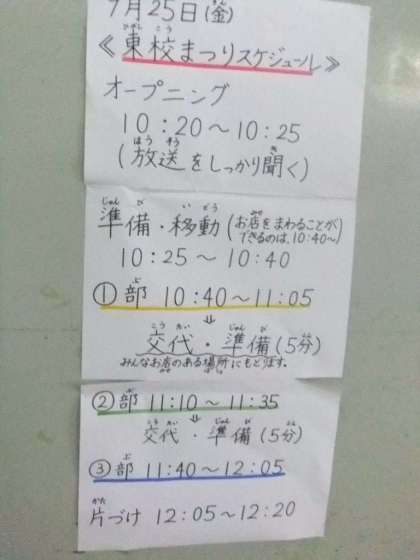 7月25日(金)
《東校まつりスケジュール》
オープニング
10:20〜10:25
(放送をしっかり聞く)
準備・移動(お店をまわることができるのは、10:40〜)
10:25〜10:40
①部 10:40〜11:05
⇓
交代・準備(5分)
みんなお店のある場所にもどります。
②部 11:10〜11:35
⇓
交代・準備(5分)
③部 11:40〜12:05
片づけ 12:05〜12:20